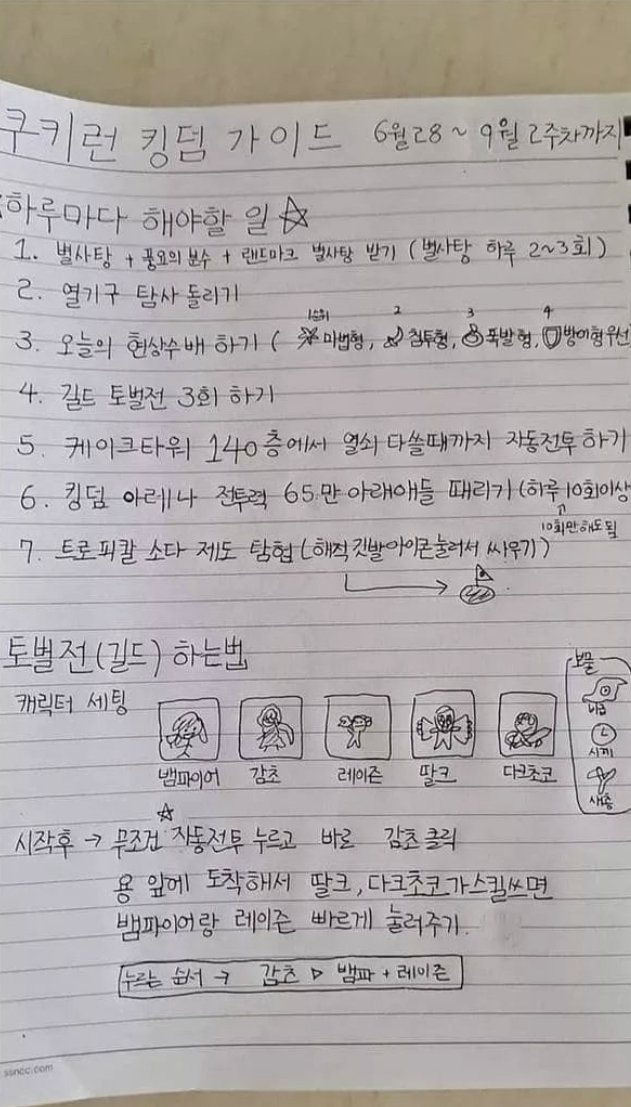 쿠키런 킹덤 가이드 6월28 ~ 9월 2주차까지
하루마다 해야할 일 ☆
1. 별사탕 + 풍요의 분수 + 랜드마크 별사탕 받기 (별사탕 하루 2~3회)
2. 열기구 탐사 돌리기
1순위 2 3 4
3. 오늘의 현상수배 하기 ( 마법형, 침투형, 폭발형, 방어형우선
4. 길드 토벌전 3회 하기
5. 케이크타워 140층에서 열쇠 다쓸때까지 자동전투 하기
6. 킹덤 아레나 전투력 65만 아래애들 때리기 (하루 10회이상
10회만해도됨
7. 트로피칼 소다 제도 탐험 (해적깃발아이콘눌러서 싸우기)
토벌전(길드) 하는법
보물
캐릭터 세팅
비급
시계
새총
뱀파이어 감초 레이즌 딸크 다크초코
시작후 → 무조건 ☆자동전투 누르고 바로 감초클릭
용 앞에 도착해서 딸크, 다크초코가스킬쓰면
뱀파이어랑 레이즌 빠르게 눌러주기.
누르는 순서 → 감초 ▷ 뱀파 + 레이즌
ssncc.com